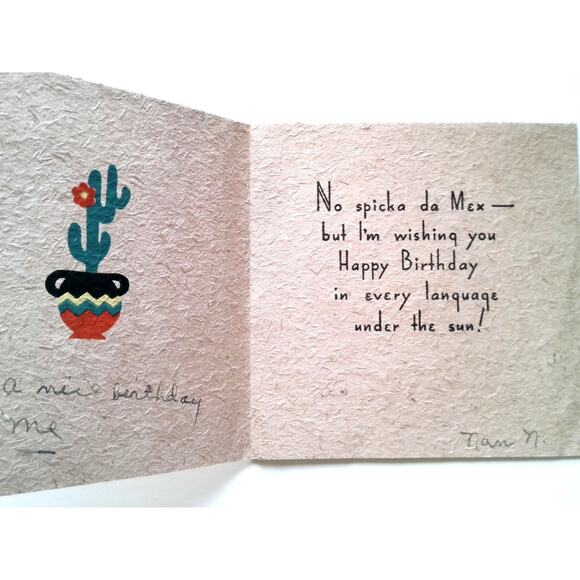 a nice birthday
me
No spicka da Mex —
but I'm wishing you
Happy Birthday
in every language
under the sun!
Nan N.